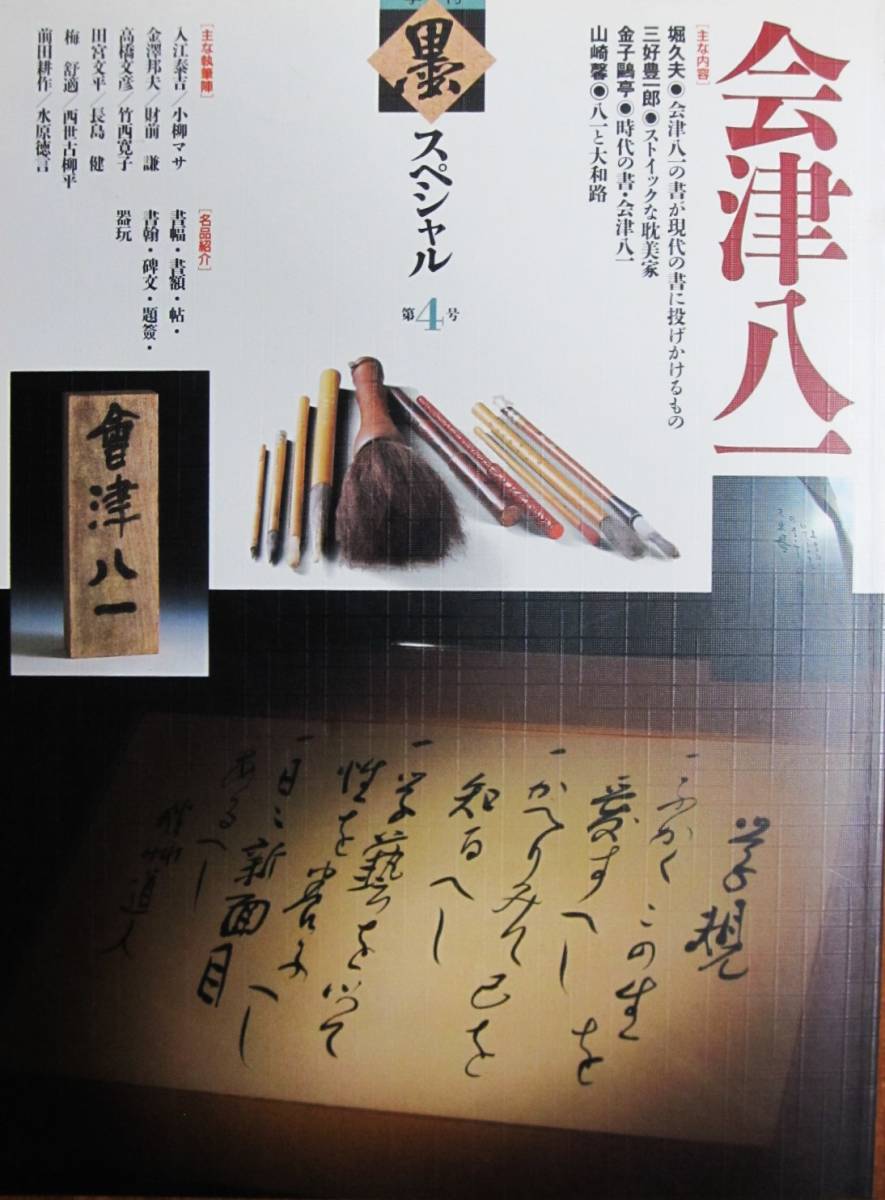 会津八一
[主な内容]
堀久夫●会津八一の書が現代の書に投げかけるもの
三好豊一郎●ストイックな耽美家
金子鷗亭●時代の書・会津八一
山崎馨●八一と大和路
墨
スペシャル
第4号
[主な執筆陣]
入江泰吉/小柳マサ
金澤邦夫/財前 謙
高橋文彦/竹西寛子
田宮文平/長島 健
梅 舒適/西世古柳平
前田耕作/水原徳言
[名品紹介]
書幅・書額・帖・
書翰・碑文・題簽・
器玩
會津八一
学規
一ふかくこの生を
愛すへし
一かへりみて己を
知るへし
一学藝を以て
性を養ふへし
一日々新面目
あるへし